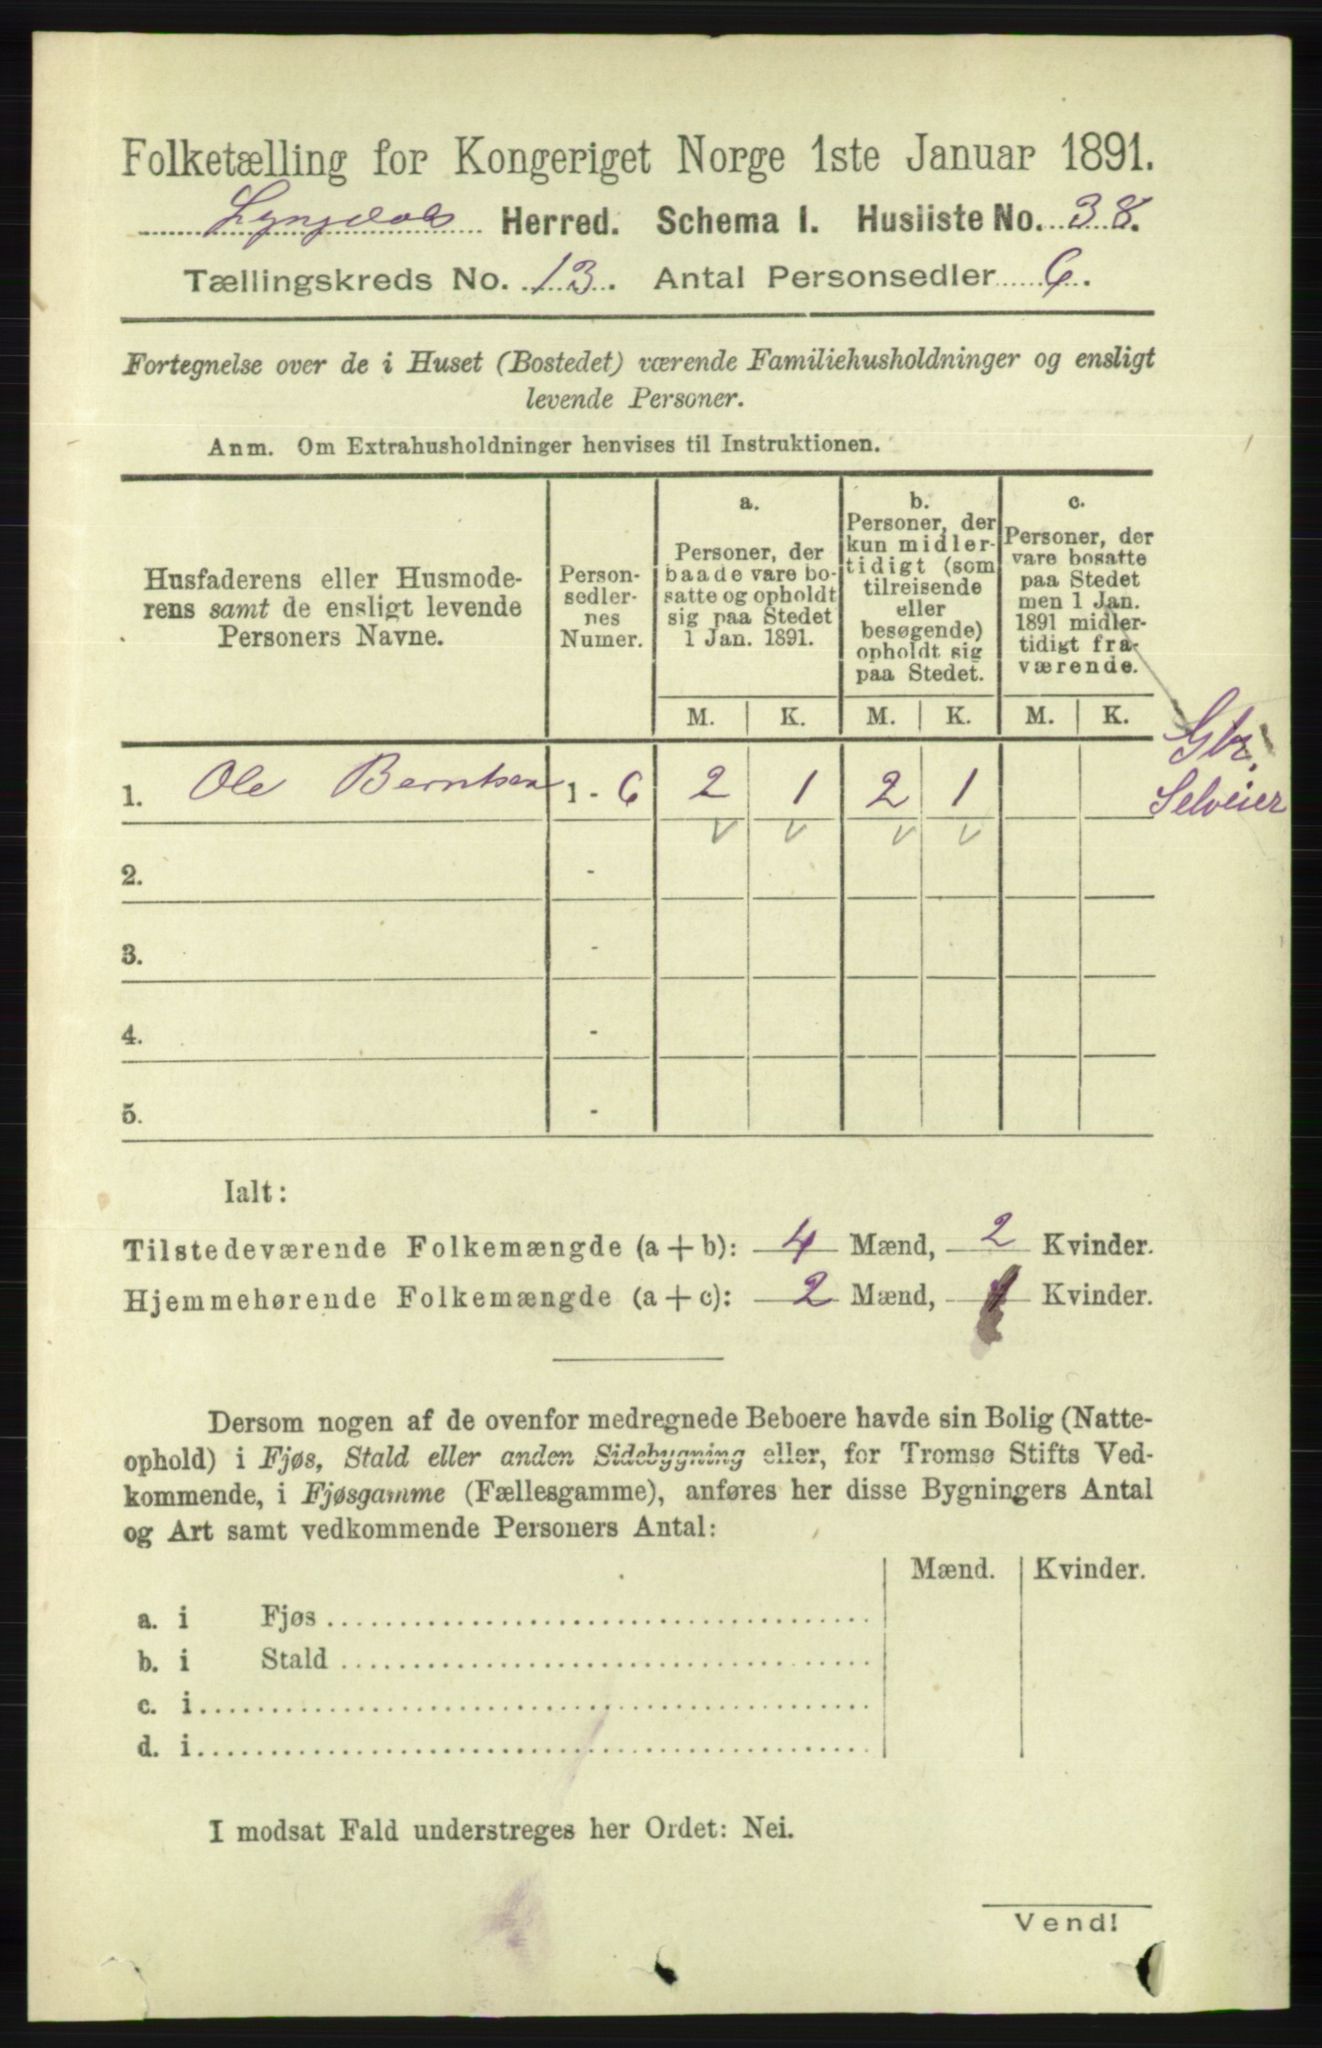 Folketælling for Kongeriget Norge 1ste Januar 1891.
Lyngdals Herred. Schema I. Husliste No. 38.
Tællingskreds No. 13. Antal Personsedler 6.
Fortegnelse over de i Huset (Bostedet) værende Familiehusholdninger og ensligt
levende Personer.
Anm. Om Extrahusholdninger henvises til Instruktionen.
Husfaderens eller Husmode-
rens samt de ensligt levende
Personers Navne.
Person-
sedler-
nes
Numer.
a.
Personer, der
baade vare bo-
satte og opholdt
sig paa Stedet
1 Jan. 1891.
b.
Personer, der
kun midler-
tidigt (som
tilreisende
eller
besøgende)
opholdt sig
paa Stedet.
c.
Personer, der
vare bosatte
paa Stedet
men 1 Jan.
1891 midler-
tidigt fra-
værende.
M. K. M. K. M. K.
Gbr.
Selveier
1. Ole Berntsen 1 - 6 2 1 2 1
v v v v
2. -
3. -
4. -
5. -
Ialt:
Tilstedeværende Folkemængde (a + b): 4 Mænd, 2 Kvinder.
Hjemmehørende Folkemængde (a + c): 2 Mænd, 1 Kvinder.
Dersom nogen af de ovenfor medregnede Beboere havde sin Bolig (Natte-
ophold) i Fjøs, Stald eller anden Sidebygning eller, for Tromsø Stifts Ved-
kommende, i Fjøsgamme (Fællesgamme), anføres her disse Bygningers Antal
og Art samt vedkommende Personers Antal:
Mænd. Kvinder.
a. i Fjøs
b. i Stald
c. i
d. i
I modsat Fald understreges her Ordet: Nei.
Vend!